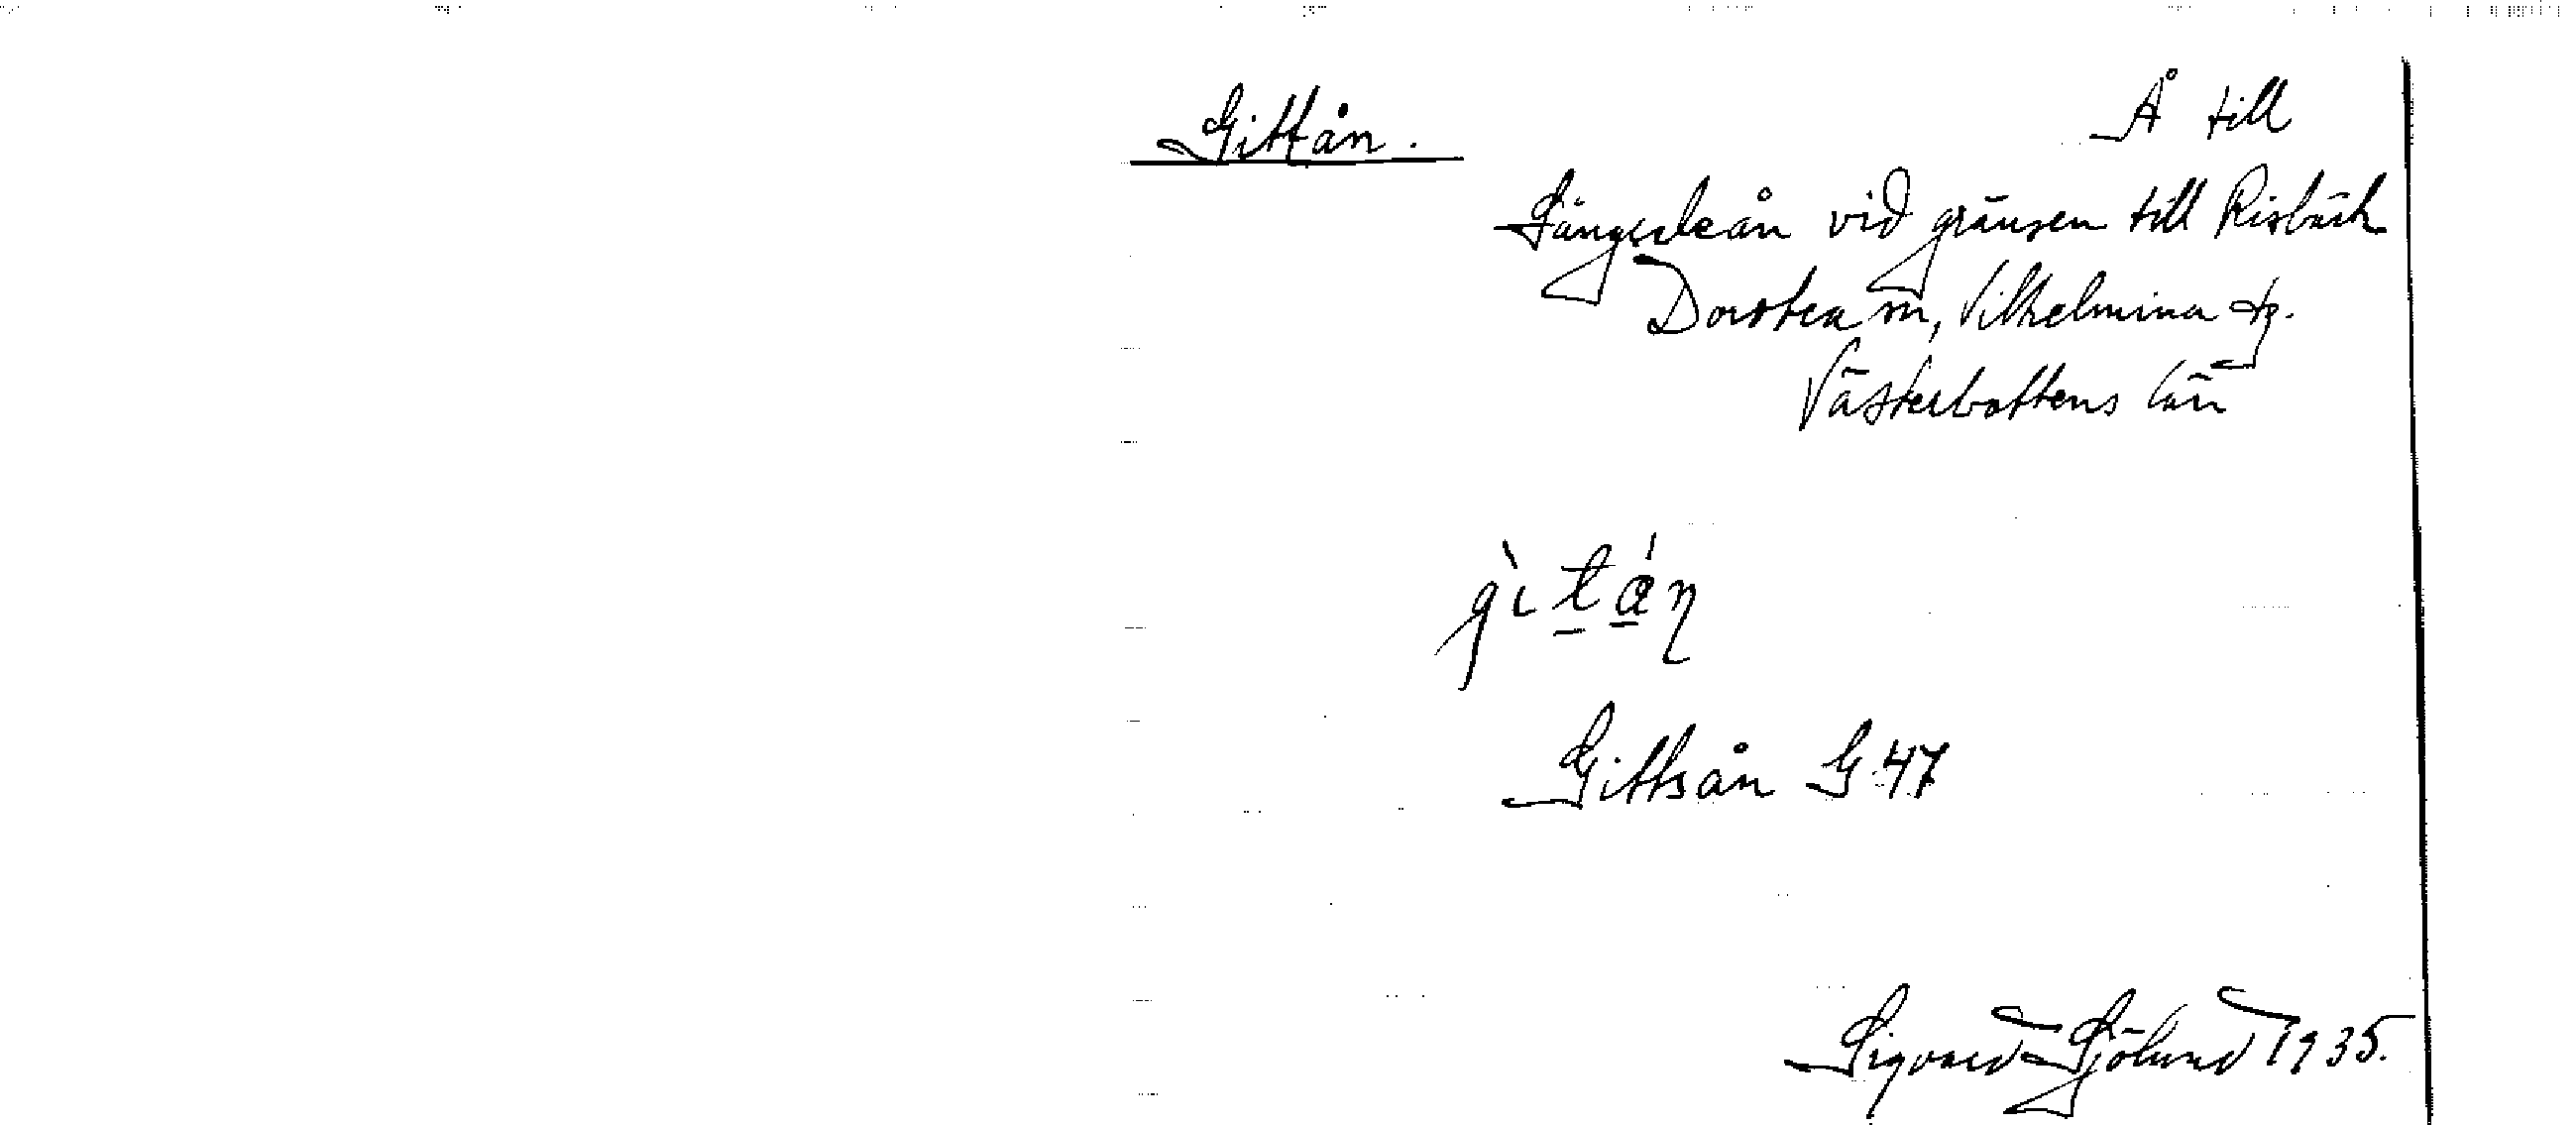 Gittån.
Å till
Sängsleån vid gränsen till Risbäck
Dorotea sn, Vilhelmina tg.
Västerbottens län
gìtán
Gittsån G 47
Sigvard Sjölund 1935.